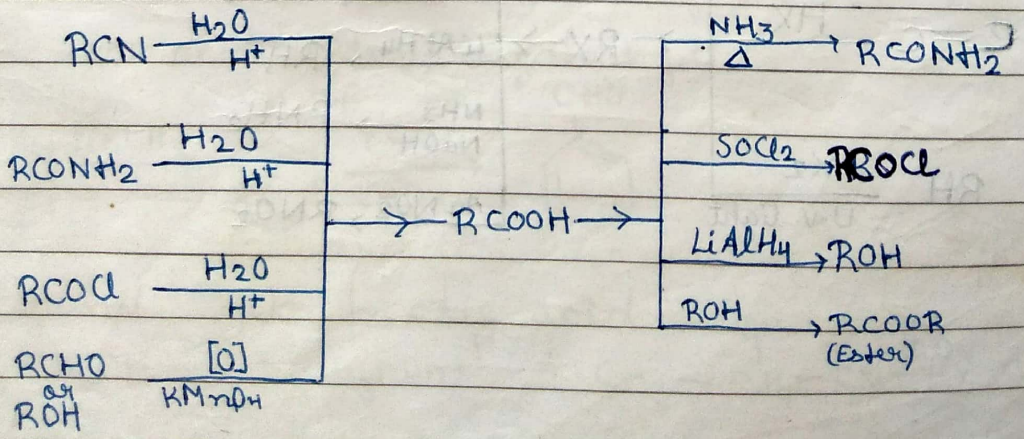 RCN H2O H+
RCONH2 H2O H+
RCOCl H2O H+
RCHO or ROH [O] KMnO4
RCOOH
NH3 Δ RCONH2
SOCl2 RCOCl
LiAlH4 ROH
ROH RCOOR
(Ester)